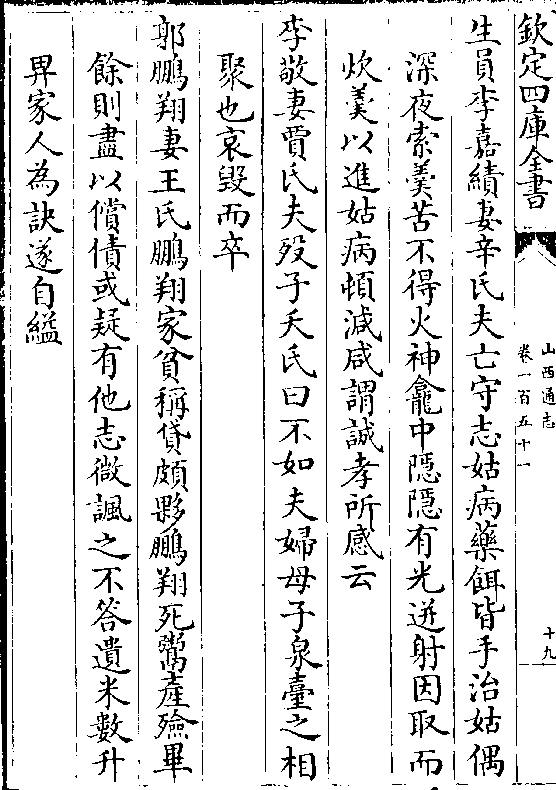 欽定四庫全書
山西通志
卷一百五十一
十九
生員李嘉績妻辛氏夫亡守志姑病藥餌皆手治姑偶
深夜索羹苦不得火神龕中隱隱有光迸射因取而
炊羹以進姑病頓減咸謂誠孝所感云
李敬妻賈氏夫殁子夭氏曰不如夫婦母子泉臺之相
聚也哀毀而卒
郭鵬翔妻王氏鵬翔家貧稱貸頗夥鵬翔死鬻產殮畢
餘則盡以償債或疑有他志微諷之不答遺米數升
畀家人為訣遂自縊